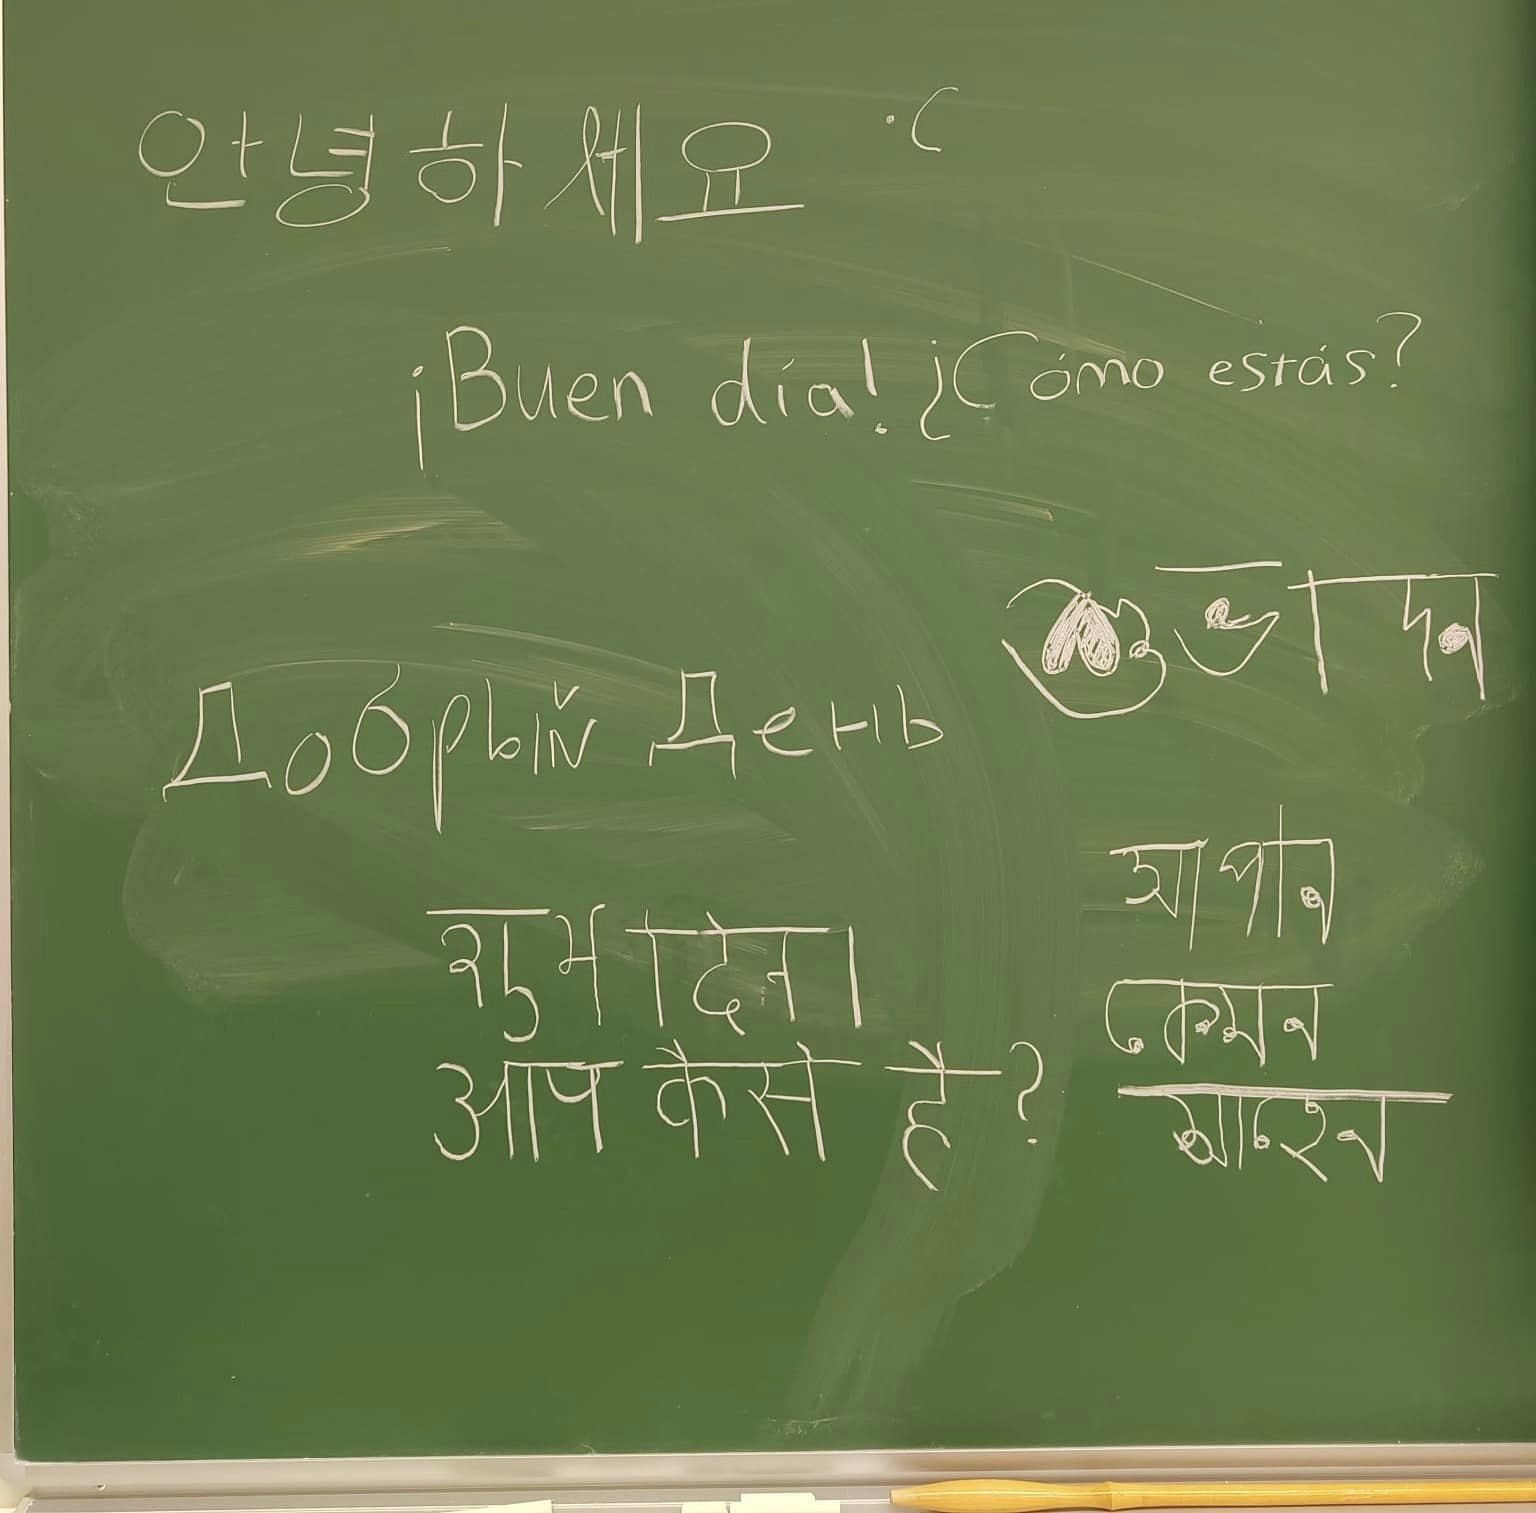 안녕하세요 ·C
¡Buen día! ¿Cómo estás?
Добрый День
शुभ दिन।
आप कैसे है?
আপনি
কেমন
আছেন